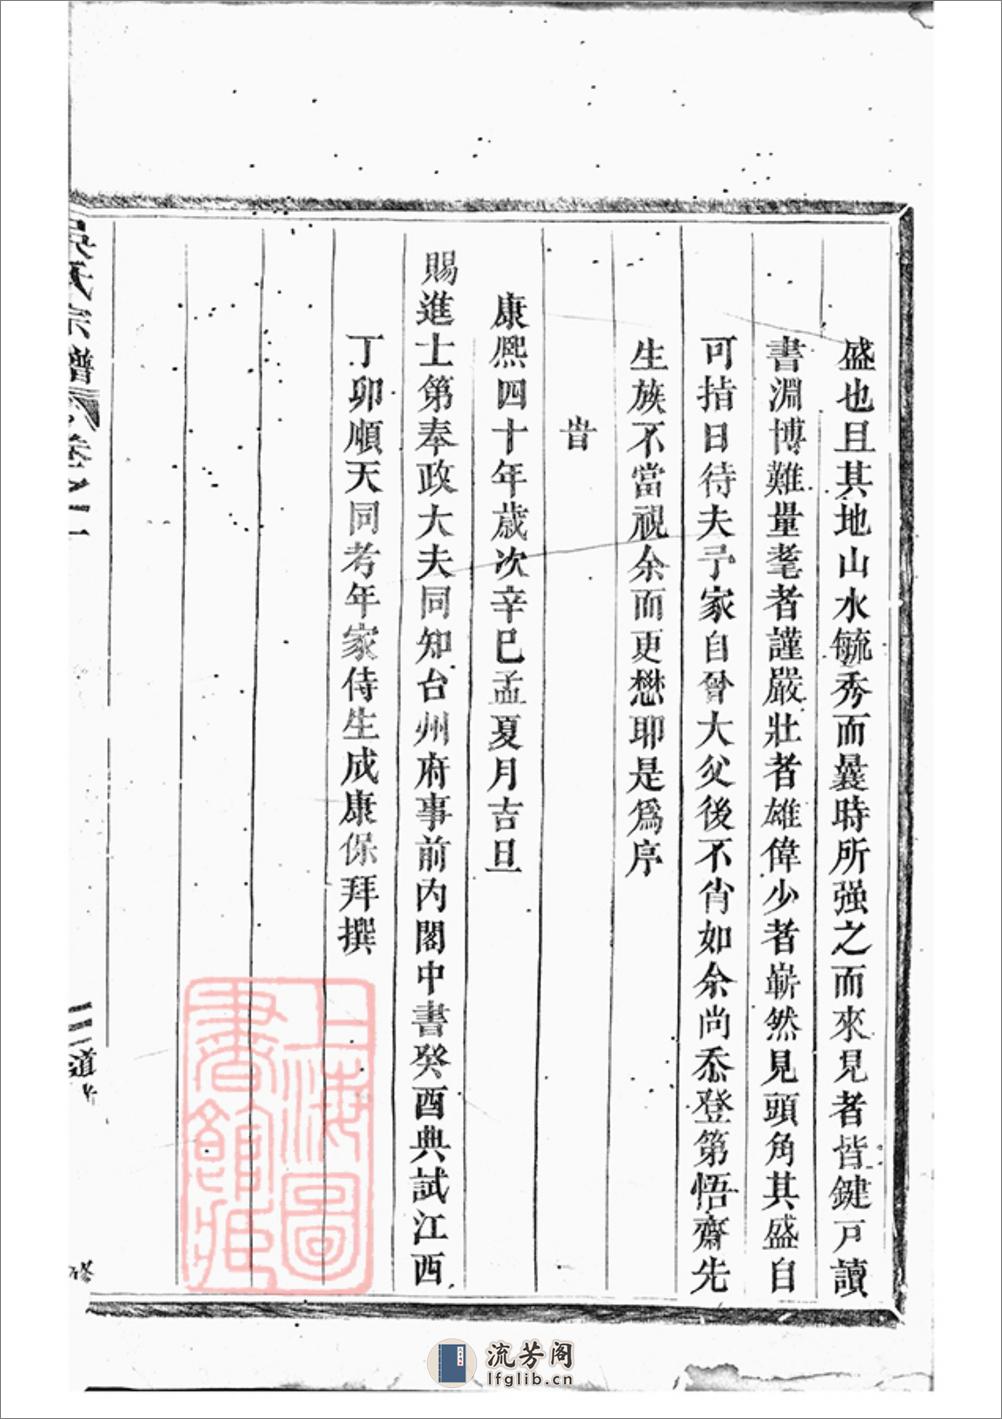 盛也且其地山水毓秀而曩時所强之而來見者皆鍵戸讀
書淵博難量耄者謹嚴壯者雄偉少者嶄然見頭角其盛自
可指日待夫予家自曾大父後不肖如余尚忝登第悟齋先
生族不當視余而更懋耶是爲序
旹
康熙四十年歲次辛巳孟夏月吉旦
賜進士第奉政大夫同知台州府事前内閣中書癸酉典試江西
丁卯順天同考年家侍生成康保拜撰
吳氏宗譜
卷之一
三
道
修
上海圖
書館藏
流芳阁
lfglib.cn